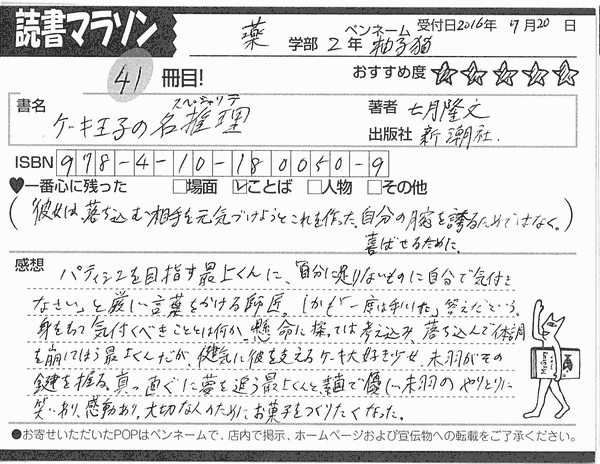 読書マラソン
薬 学部 2年 ペンネーム 柚子猫 受付日2016年 7月20日
41 冊目! おすすめ度 ☆☆☆☆☆
書名 ケーキ王子の名推理 スペシャリテ
著者 七月隆文
出版社 新潮社.
ISBN 978-4-10-180050-9
♥一番心に残った □場面 ☑ことば □人物 □その他
(彼女は、落ち込む相手を元気づけようとこれを作った。自分の腕を誇るためではなく。)
喜ばせるために。
感想 パティシエを目指す最上くんに、「自分に足りないものに自分で気付き
なさい」と厳しい言葉をかける師匠。しかも「一度は手にした」答えだという。
身をもって気付くべきこととは何か、懸命に探っては考え込み、落ち込んで体調
を崩してしまう最上くんだが、健気に彼を支えるケーキ大好き少女、未羽がその
鍵を握る。真っ直ぐに夢を追う最上くんと、一途で優しい未羽のやりとりに
笑いあり、感動あり、大切な人のためにお菓子をつくりたくなった。
●お寄せいただいたPOPはペンネームで、店内で掲示、ホームページおよび宣伝物への転載をご了承ください。